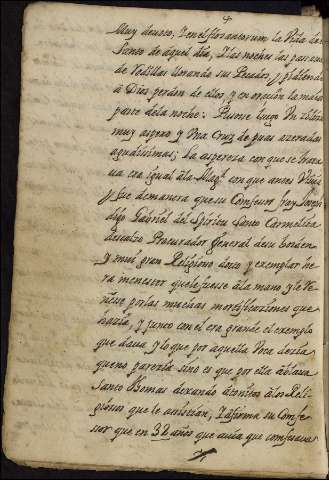 Muy deuoto, Y en el flos santorum la Vida del
Santo de aquel dia, Y las noches las passaua
de Rodillas llorando sus Pecados, y pidiendo
à Dios perdon de ellos, y en oracion la maior
parte de la noche. Pusose luego Vn silicio
muy aspero y Vna Cruz de puas azeradas
agudissimas; La aspereza con que se trata
ua era igual àla Mag.d con que antes Viuia
y fue de manera que su Confesor fray
digo Gabriel del Spiritu Santo Carmelita
descalzo Procurador General de su horden
y mui gran Religioso, docto y exemplar he
ra menester que le fuese àla mano, y le Ve
niese por las muchas mortificaciones que
hazia, y junto con el era grande el exemplo
que daua y lo que por aquella Voca dezia
que no parecia sino es que por ella ablaua
Santo Thomas dexando àtonitos àlos Reli
giosos que le asistian, Y afirma su Confe
sor que en 32 años que auia que confesaua